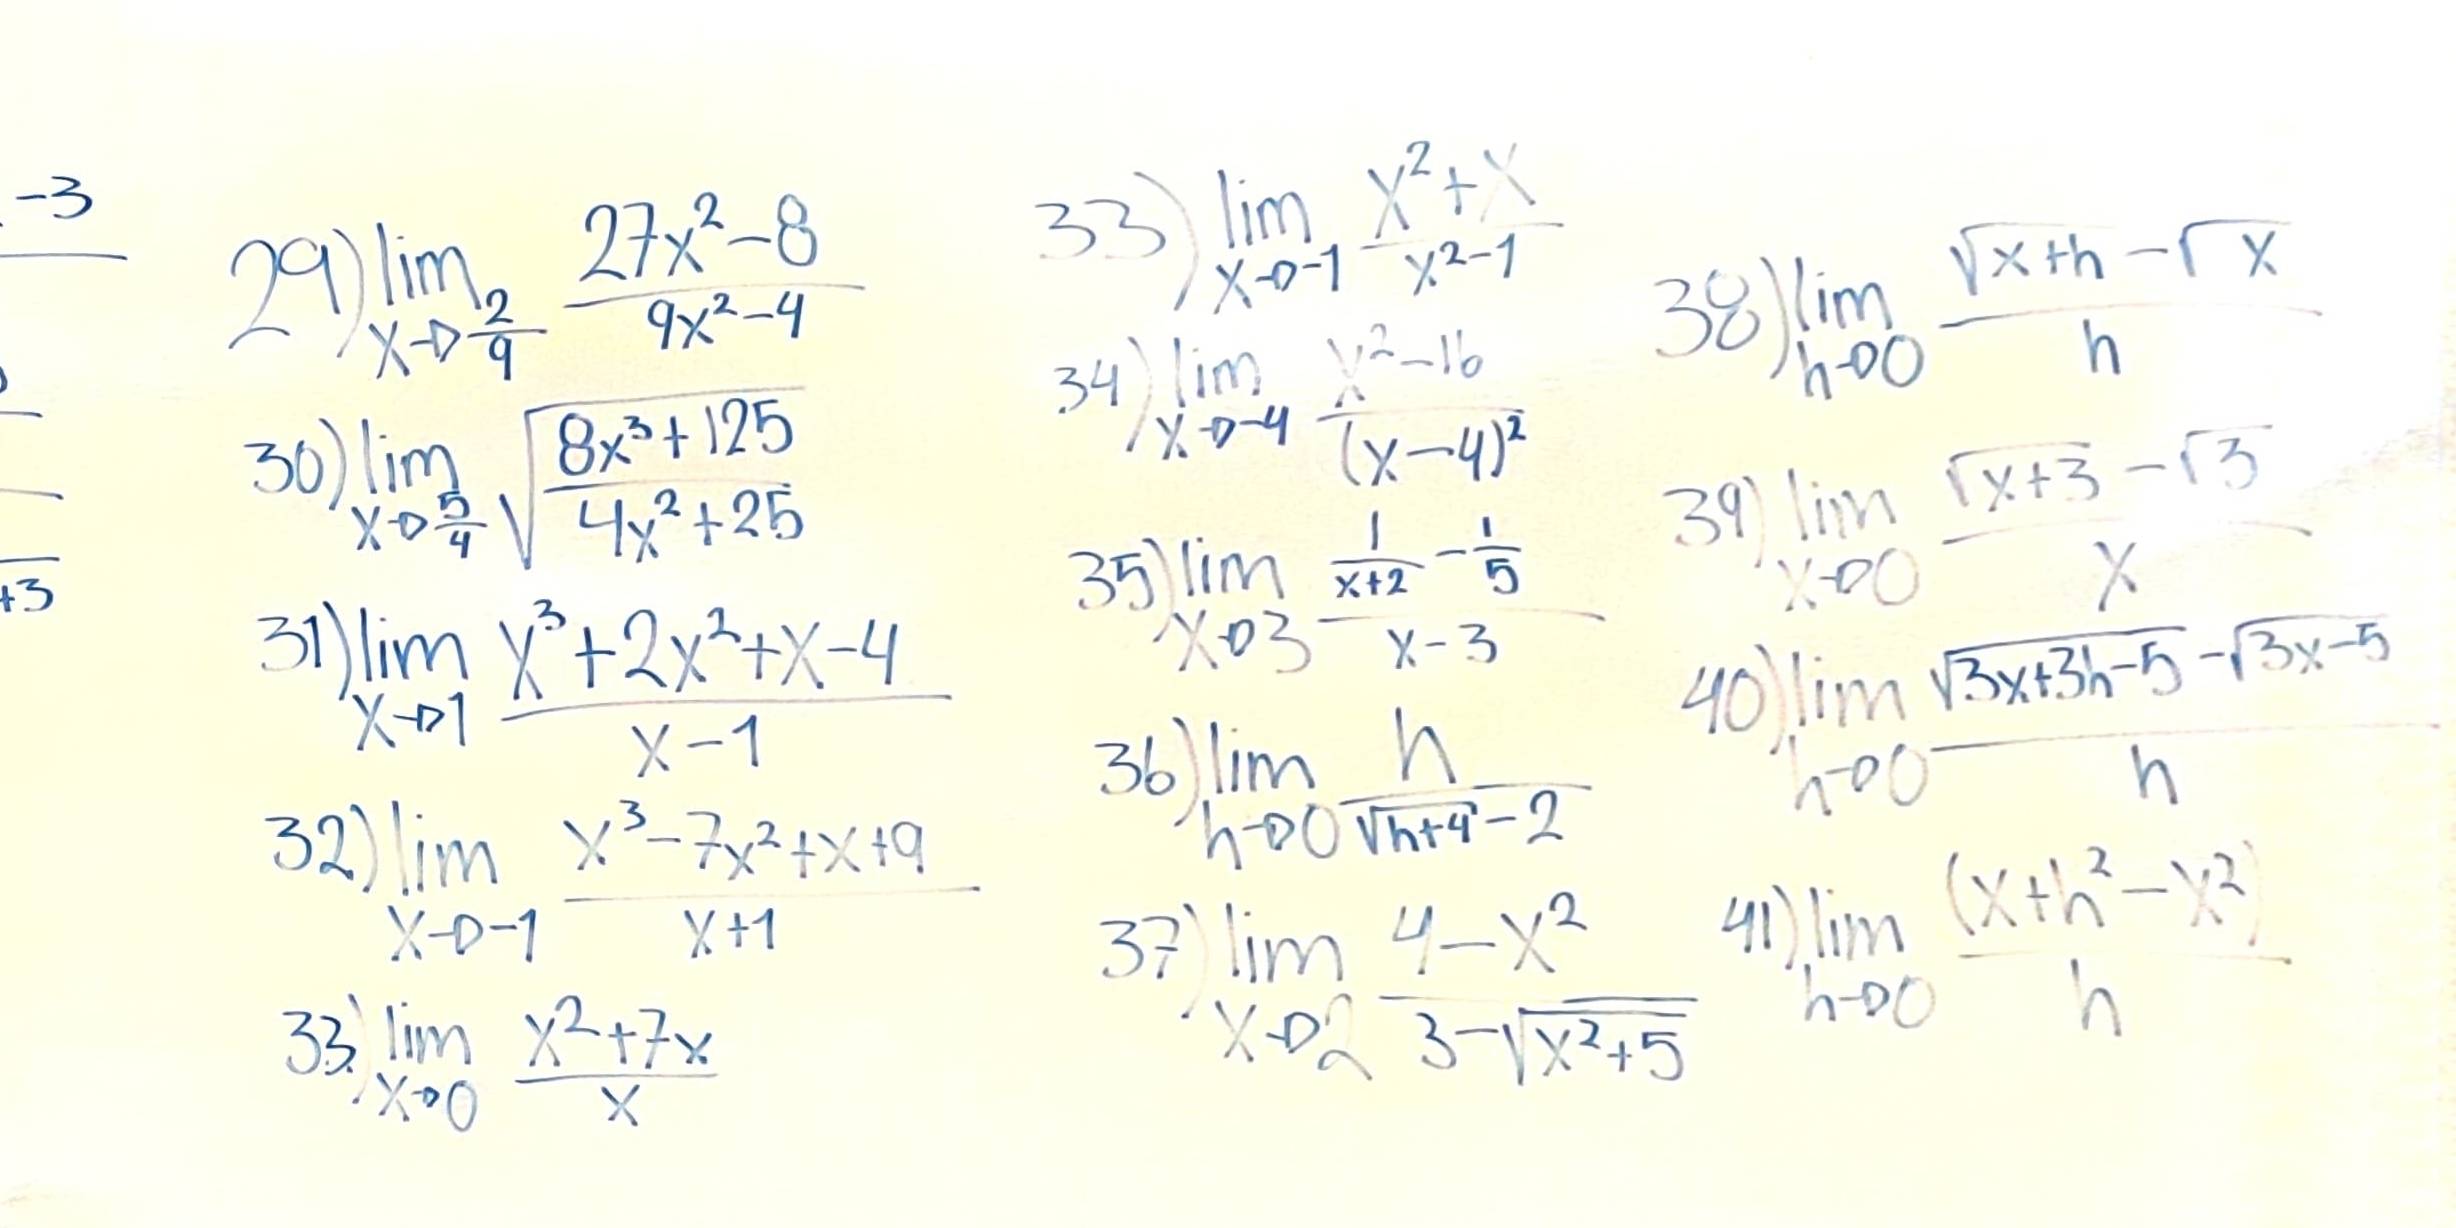 -3
+3
29) lim x→2/9 (27x²-8)/(9x²-4)
30) lim x→5/4 √((8x³+125)/(4x²+25))
31) lim x→1 (x³+2x²+x-4)/(x-1)
32) lim x→-1 (x³-7x²+x+9)/(x+1)
33) lim x→0 (x²+7x)/x
33) lim x→-1 (x²+x)/(x²-1)
34) lim x→-4 (x²-16)/(x-4)²
35) lim x→3 (1/(x+2) - 1/5)/(x-3)
36) lim h→0 h/(√(h+4) -2)
37) lim x→2 (4-x²)/(3-√(x²+5))
38) lim h→0 (√(x+h) -√x)/h
39) lim x→0 (√(x+3) -√3)/x
40) lim h→0 (√(3x+3h-5) -√(3x-5))/h
41) lim h→0 (x+h²-x²)/h